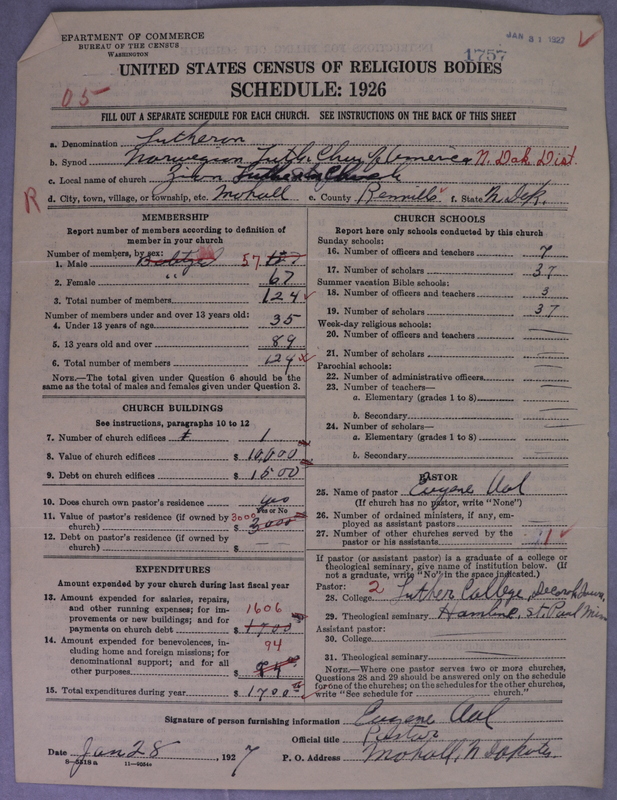 EPARTMENT OF COMMERCE
BUREAU OF THE CENSUS
WASHINGTON
JAN 31 1927
1757
UNITED STATES CENSUS OF RELIGIOUS BODIES
SCHEDULE: 1926
05-
FILL OUT A SEPARATE SCHEDULE FOR EACH CHURCH. SEE INSTRUCTIONS ON THE BACK OF THIS SHEET
a. Denomination Lutheran
b. Synod Norwegian Luth. Church of America N. Dak. Dist.
c. Local name of church Zion Lutheran Church
R
d. City, town, village, or township, etc. Mohall e. County Renville f. State N. Dak.
MEMBERSHIP
Report number of members according to definition of
member in your church
Number of members, by sex:
1. Male 57
2. Female " 67
3. Total number of members 124
Number of members under and over 13 years old:
4. Under 13 years of age 35
5. 13 years old and over 89
6. Total number of members 124
NOTE.—The total given under Question 6 should be the
same as the total of males and females given under Question 3.
CHURCH BUILDINGS
See instructions, paragraphs 10 to 12
7. Number of church edifices 1
8. Value of church edifices $ 10,000
9. Debt on church edifices $ 1500
10. Does church own pastor's residence yes
Yes or No
11. Value of pastor's residence (if owned by
church) $ 3000 3000
12. Debt on pastor's residence (if owned by
church) $
EXPENDITURES
Amount expended by your church during last fiscal year
13. Amount expended for salaries, repairs,
and other running expenses; for im-
provements or new buildings; and for
payments on church debt $ 1606 1700
14. Amount expended for benevolences, in-
cluding home and foreign missions; for
denominational support; and for all
other purposes $ 94
15. Total expenditures during year $ 1700
CHURCH SCHOOLS
Report here only schools conducted by this church
Sunday schools:
16. Number of officers and teachers 7
17. Number of scholars 37
Summer vacation Bible schools:
18. Number of officers and teachers 3
19. Number of scholars 37
Week-day religious schools:
20. Number of officers and teachers
21. Number of scholars
Parochial schools:
22. Number of administrative officers
23. Number of teachers—
a. Elementary (grades 1 to 8)
b. Secondary
24. Number of scholars—
a. Elementary (grades 1 to 8)
b. Secondary
PASTOR
25. Name of pastor Eugene Aal
(If church has no pastor, write "None")
26. Number of ordained ministers, if any, em-
ployed as assistant pastors
27. Number of other churches served by the
pastor or his assistants 1
If pastor (or assistant pastor) is a graduate of a college or
theological seminary, give name of institution below. (If
not a graduate, write "No" in the space indicated.)
Pastor: 2
28. College Luther College, Decorah, Iowa
29. Theological seminary Hamline, St. Paul Minn
Assistant pastor:
30. College
31. Theological seminary
NOTE.—Where one pastor serves two or more churches,
Questions 28 and 29 should be answered only on the schedule
for one of the churches; on the schedules for the other churches,
write "See schedule for church."
Signature of person furnishing information Eugene Aal
Official title Pastor
Date Jan 28, 1927 P. O. Address Mohall, N Dakota
8-5518 a 11-9354